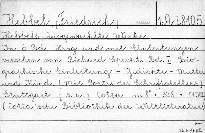 Hebbel, (Friedrich) 4.i.18405
Hebbels ausgewählte Werke.
In 6 Bdn. Hrsg. und mit Einleitungen
versehen von Richard Specht. Bd. 1: Bio-
graphische Einleitung - Gedichte - Mutter
und Kind. (Mit Portr. des Schriftstellers)
Stuttgart (u.a.) Cotta
(Cotta'sche Bibliothek der Weltliteratur)